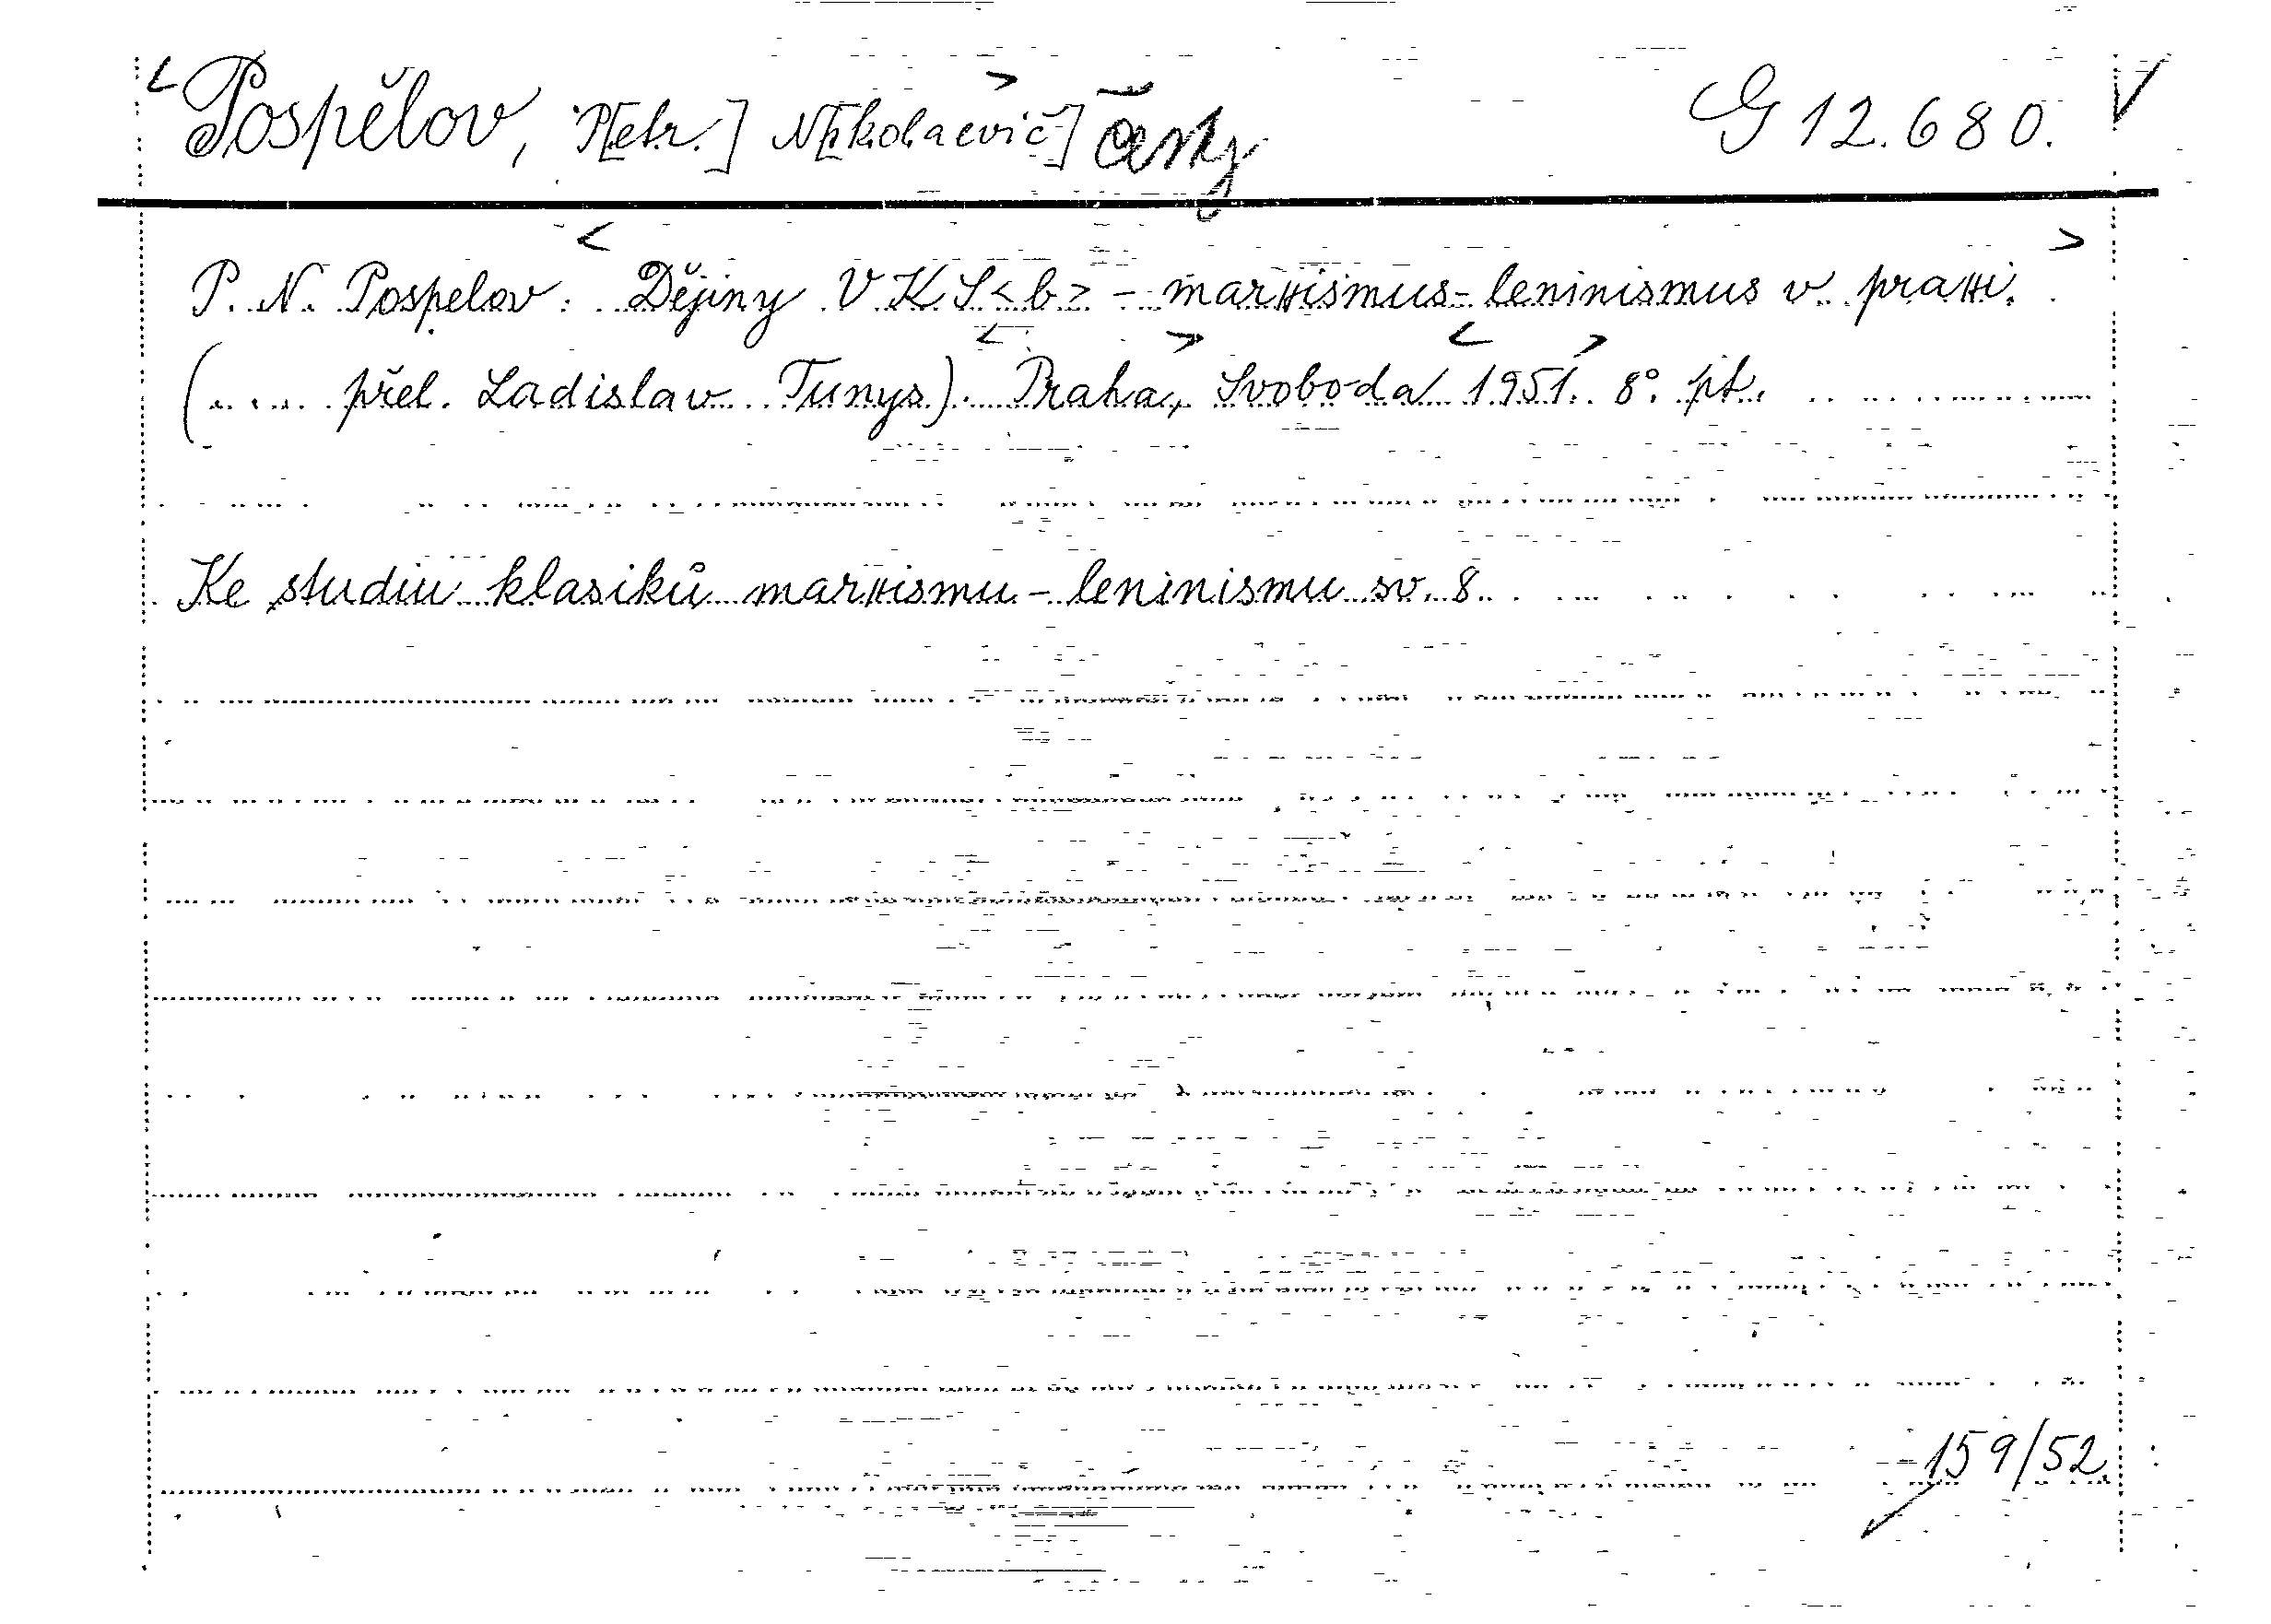 <Pospělov, P[etr.] N[ikolaevič]> česky G 12.680. V
P. N. Pospelov: <Dějiny VKS<b> - marxismus-leninismus v praxi.>
(.... přel. Ladislav Tunys). <Praha>, Svoboda <1951>. 8°. pt.
Ke studiu klasiků marxismu-leninismu sv. 8.
159/52